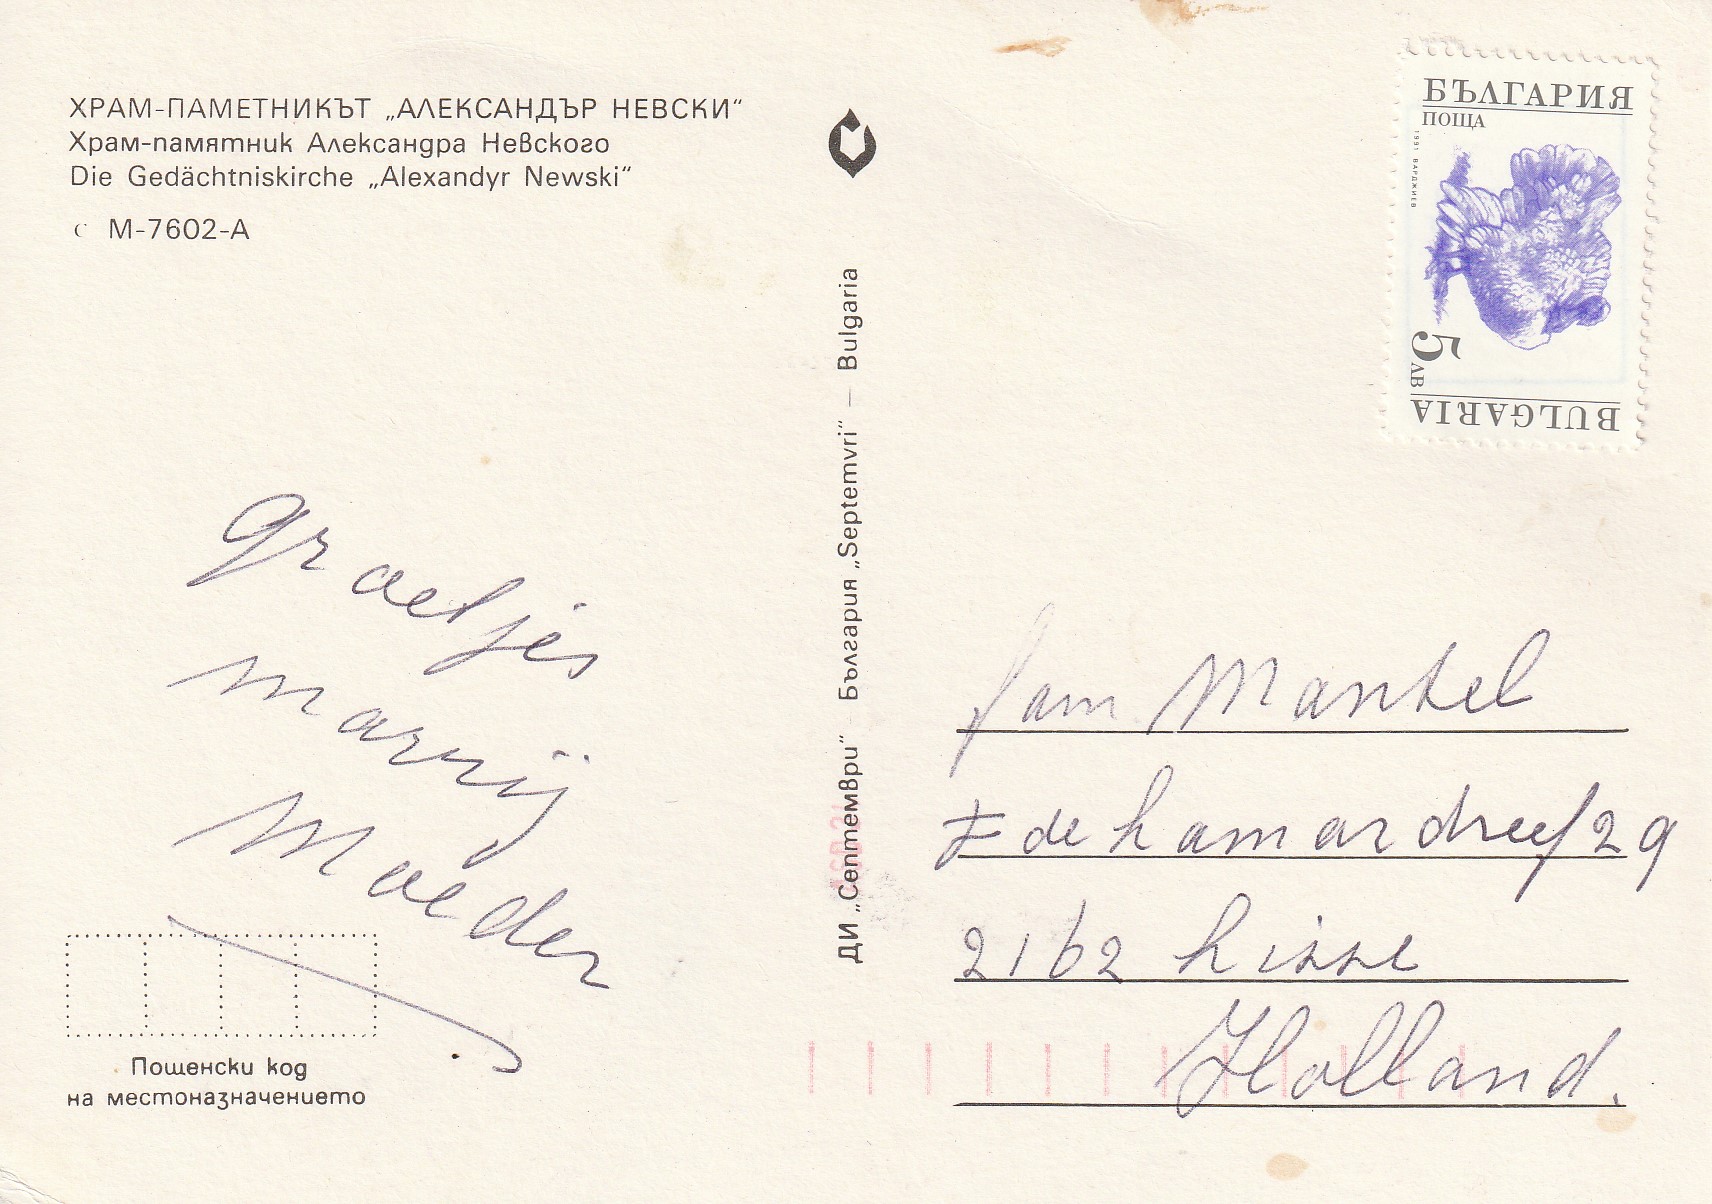 ХРАМ-ПАМЕТНИКЪТ „АЛЕКСАНДЪР НЕВСКИ“
Храм-памятник Александра Невского
Die Gedächtniskirche „Alexandyr Newski“
с М-7602-А
groetjes
marrij
Moeder
Пощенски код
на местоназначението
ДИ „Септември“ – България „Septemvri“ – Bulgaria
БЪЛГАРИЯ
ПОЩА
1991 ВАРДЖИЕВ
5 ЛВ
BULGARIA
fam Mankel
Edehamardreef 29
2162 Lisse
Holland.